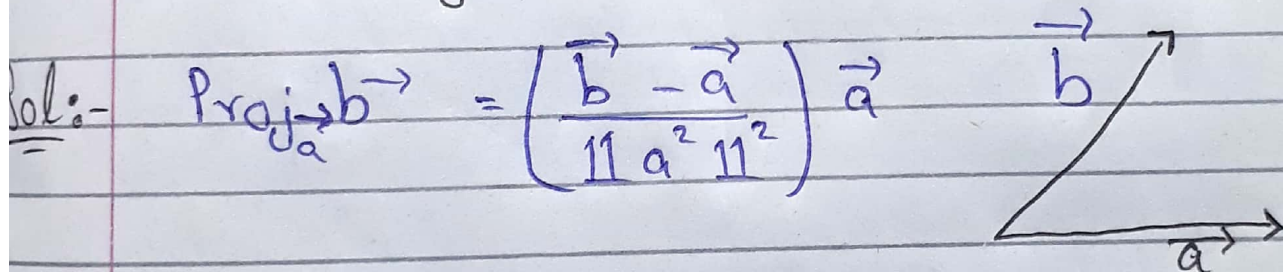 Sol:- Proj_a→ b→ = ( b→ - a→ / 11 a² 11² ) a→
b→
a→